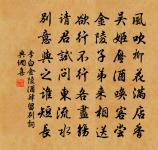 風吹柳花滿店香
吳姬壓酒喚客嘗
金陵子弟來相送
欲行不行各盡觴
請君試問東流水
別意與之誰短長
李白金陵酒肆留別詞
典網